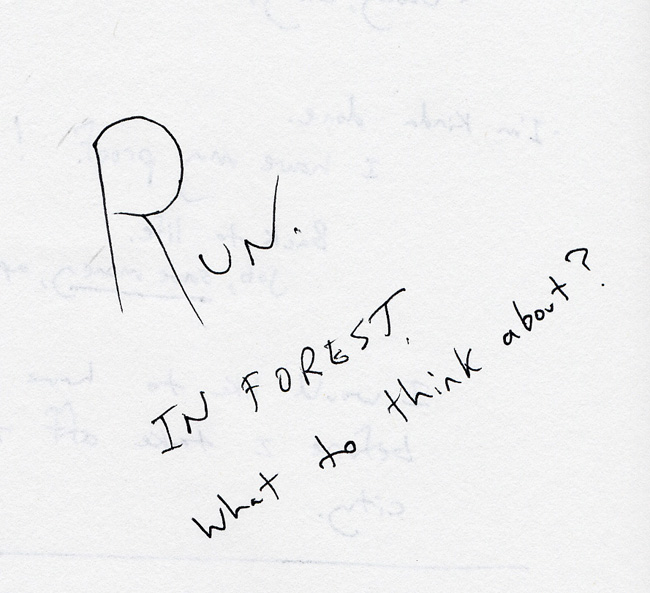 RUN.
IN FOREST.
What to think about?